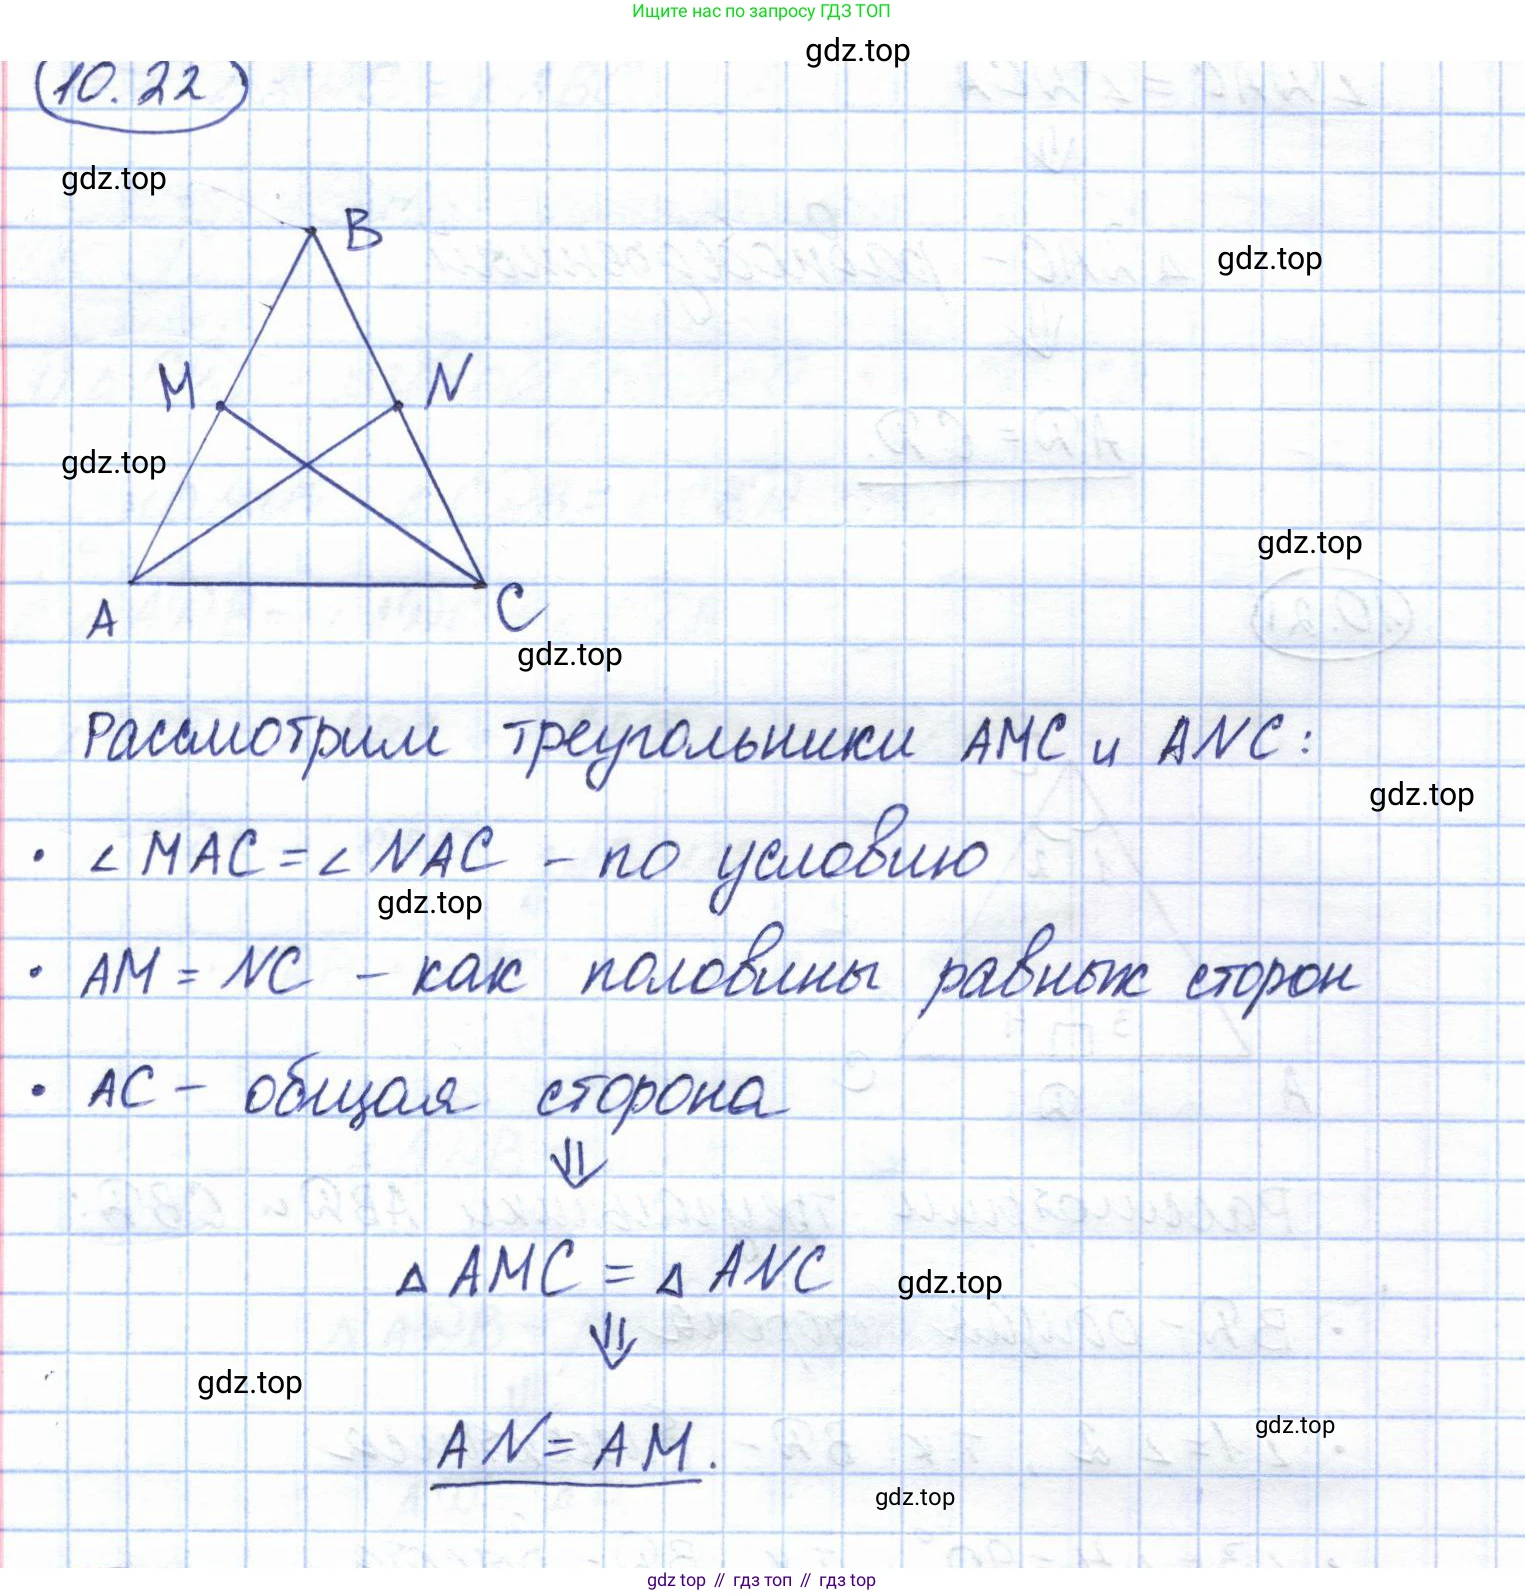 Ищите нас по запросу ГДЗ ТОП
gdz.top
10.22
gdz.top
B
gdz.top
M
N
gdz.top
gdz.top
A
C
gdz.top
Рассмотрим треугольники AMC и ANC:
gdz.top
• ∠MAC = ∠NAC – по условию
gdz.top
• AM = NC – как половины равных сторон
• AC – общая сторона
⇓
△AMC = △ANC
gdz.top
⇓
gdz.top
AN = AM.
gdz.top
gdz.top
gdz top // гдз топ // гдз top